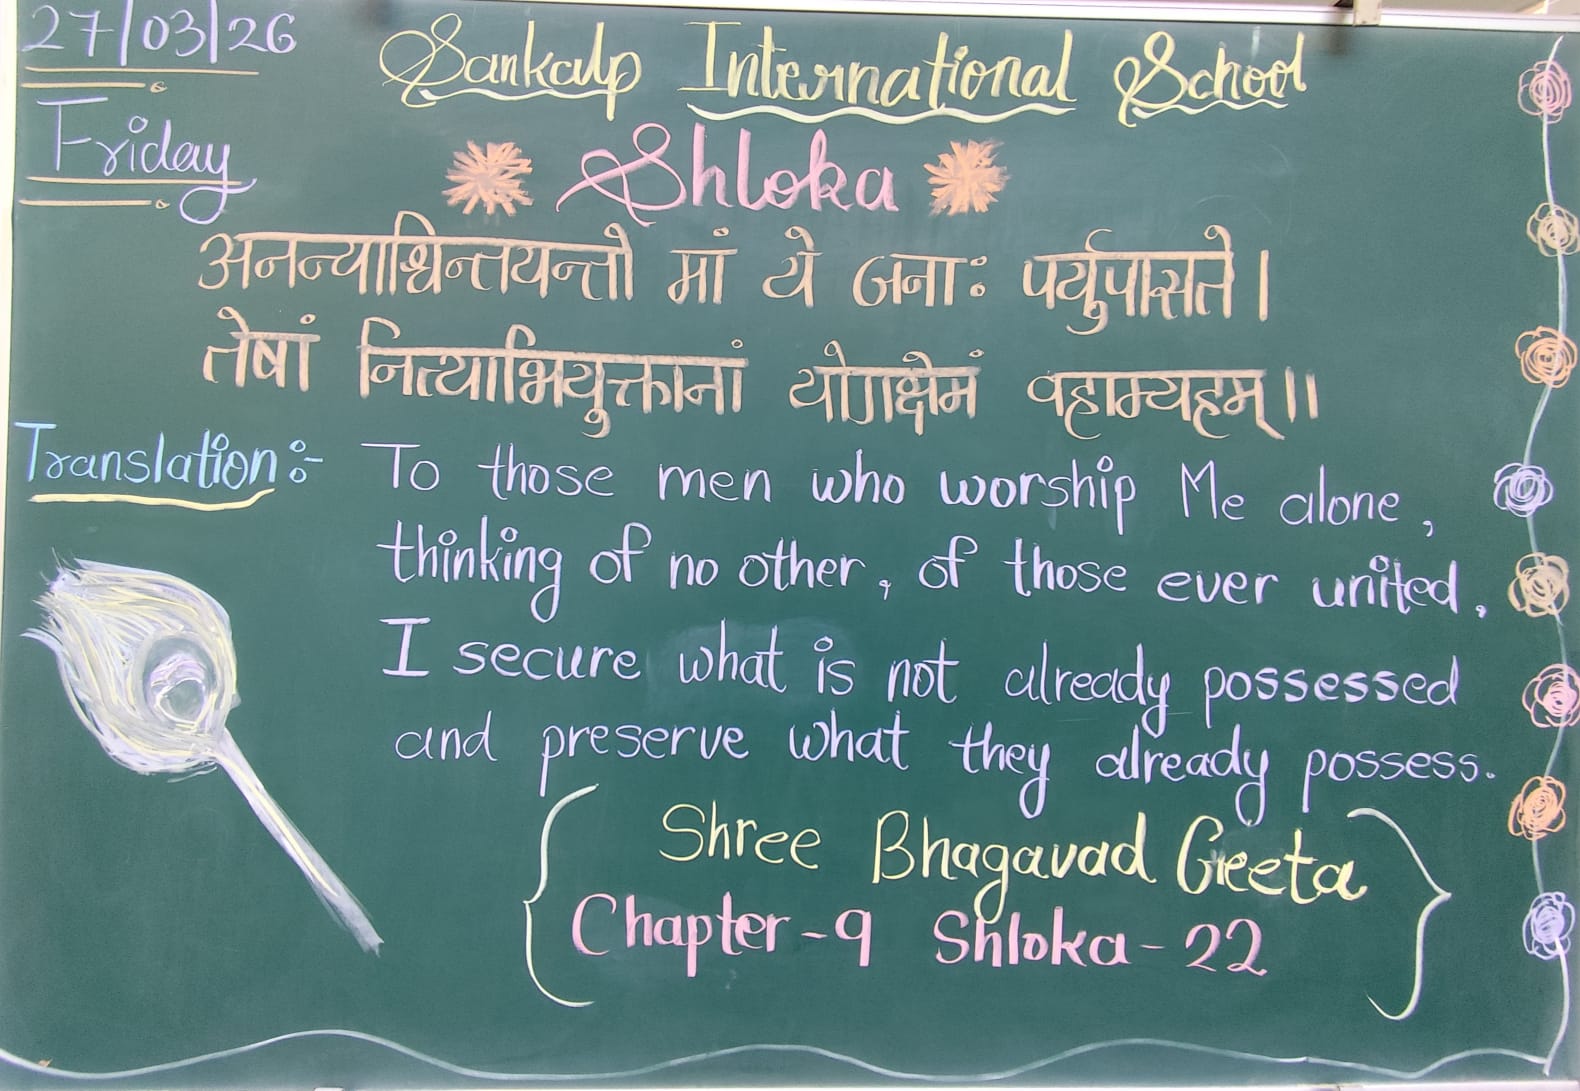 27/03/26
Friday
Sankalp International School
Shloka
अनन्याश्चिन्तयन्तो मां ये जनाः पर्युपासते।
तेषां नित्याभियुक्तानां योगक्षेमं वहाम्यहम्॥
Translation:- To those men who worship Me alone,
thinking of no other, of those ever united,
I secure what is not already possessed
and preserve what they already possess.
Shree Bhagavad Geeta
Chapter-9 Shloka-22